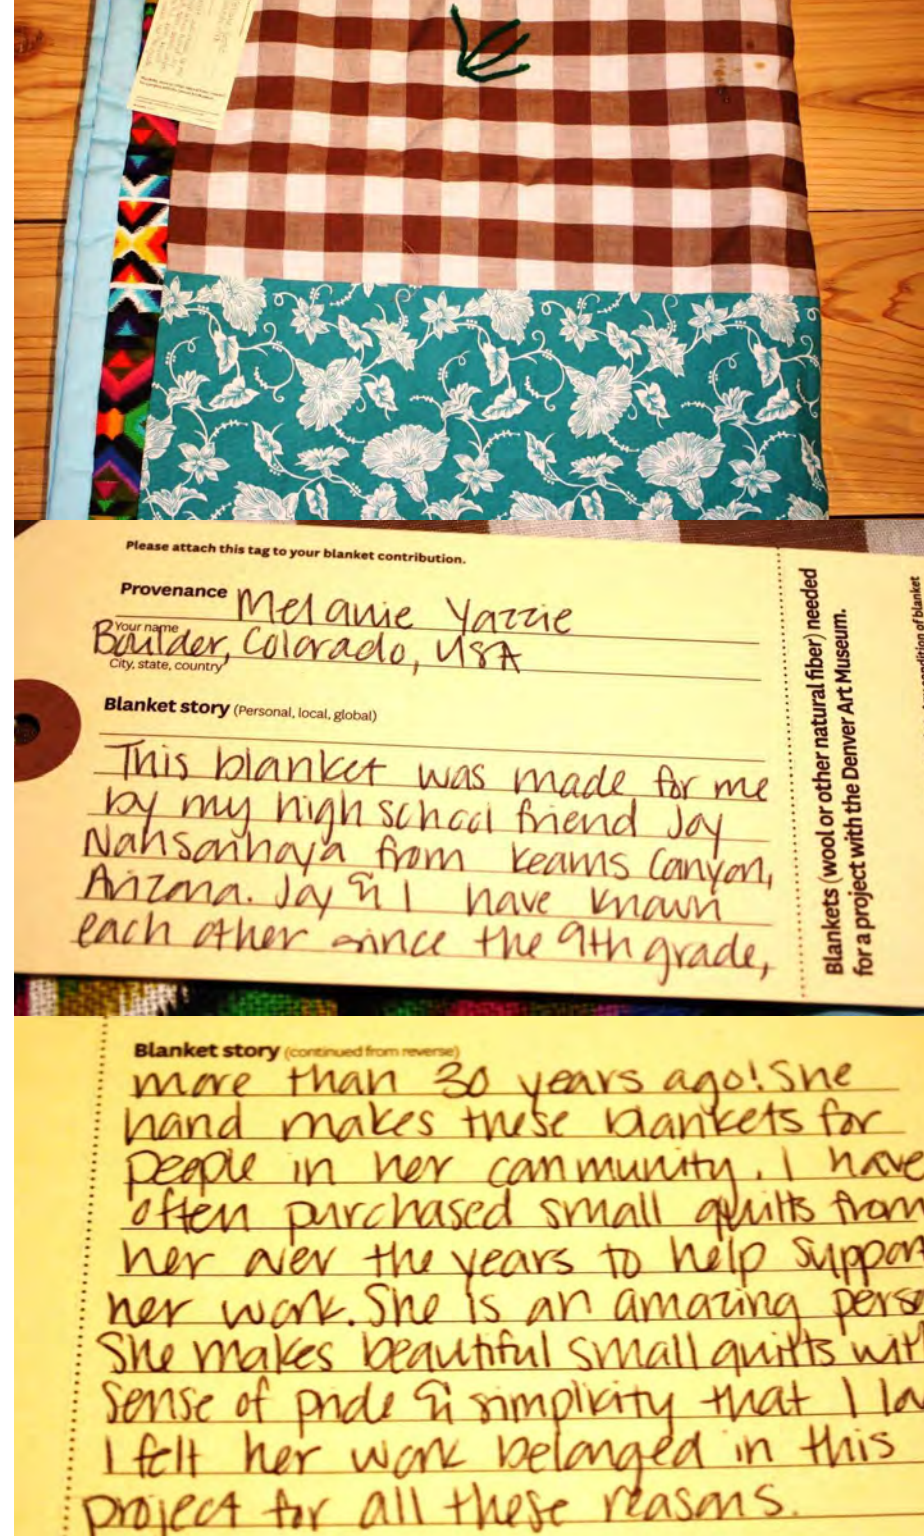 Please attach this tag to your blanket contribution.
Provenance Melanie Yazzie
Your name
Boulder, Colorado, USA
City, state, country
Blanket story (Personal, local, global)
This blanket was made for me
by my high school friend Joy
Nahsonhoya from Keams Canyon,
Arizona. Joy & I have known
each other since the 9th grade,
Blankets (wool or other natural fiber) needed
for a project with the Denver Art Museum.
condition of blanket
Blanket story (continued from reverse)
more than 30 years ago! She
hand makes these blankets for
people in her community. I have
often purchased small quilts from
her over the years to help suppor
her work. She is an amazing perso
She makes beautiful small quilts with
sense of pride & simplicity that I lo
I felt her work belonged in this
project for all these reasons.